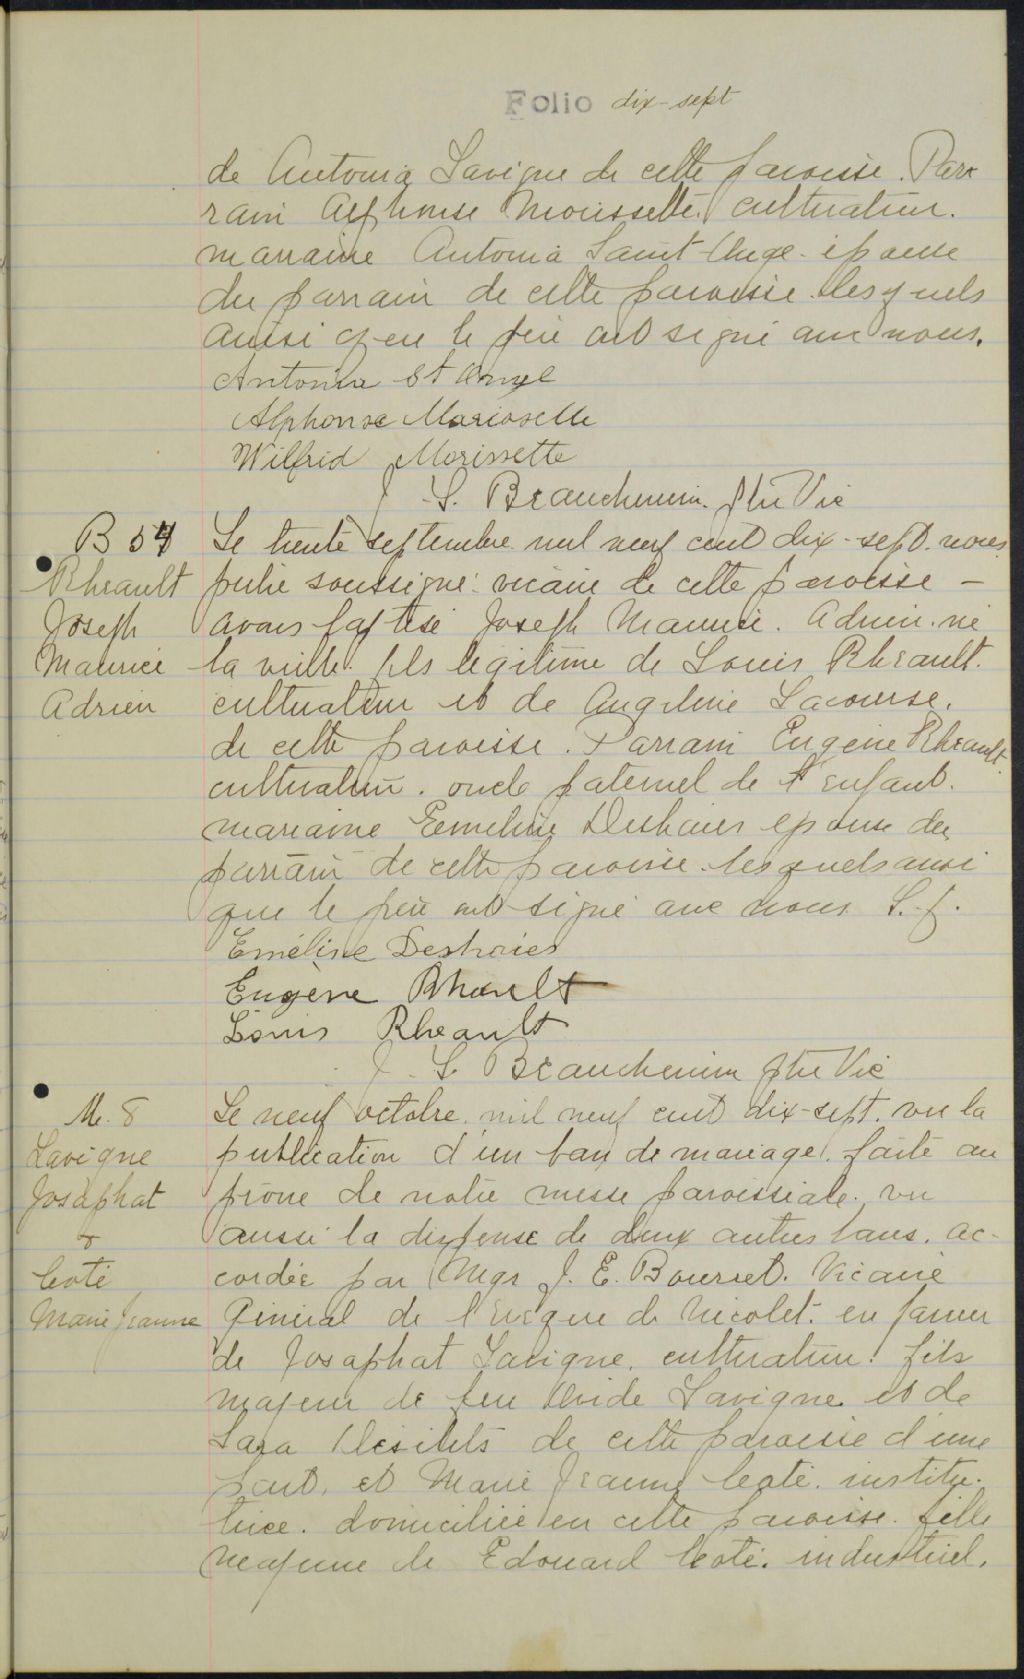 Folio dix-sept
de Antonia Lavigne de cette paroisse. Par
rain Alphonse Morissette cultivateur.
marraine Antonia Saint Ange. épouse
du parrain de cette paroisse lesquels
ainsi que le père ont signé avec nous.
Antonia St Ange
Alphonse Morissette
Wilfrid Morissette
J. L. Beauchemin. ptre Vic
B 54
Rheault
Joseph
Maurice
Adrien
Le trente septembre mil neuf cent dix-sept. nous
prêtre soussigné vicaire de cette paroisse -
avons baptisé Joseph Maurice. Adrien. né
la veille. fils légitime de Louis Rheault.
cultivateur et de Angeline Lacourse.
de cette paroisse. Parrain Eugène Rheault
cultivateur. oncle paternel de l'enfant.
marraine Emeline Deshaies épouse du
parrain de cette paroisse. lesquels ainsi
que le père ont signé avec nous L. f.
Eméline Deshaies
Eugène Rheault
Louis Rheault
J. L. Beauchemin ptre Vic
M. 8
Lavigne
Josaphat
&
Coté
Marie Jeanne
Le neuf octobre. mil neuf cent dix-sept. vu la
publication d'un ban de mariage. faite au
prône de notre messe paroissiale. vu
aussi la dispense de deux autres bans. ac-
cordée par Mgr J. E. Bourret. Vicaire
Général de l'Evêque de Nicolet. en faveur
de Josaphat Lavigne. cultivateur. fils
majeur de feu Ovide Lavigne et de
Sara Désilets de cette paroisse d'une
part, et Marie Jeanne Coté. institu-
trice. domiciliée en cette paroisse. fille
majeure de Edouard Coté. industriel.